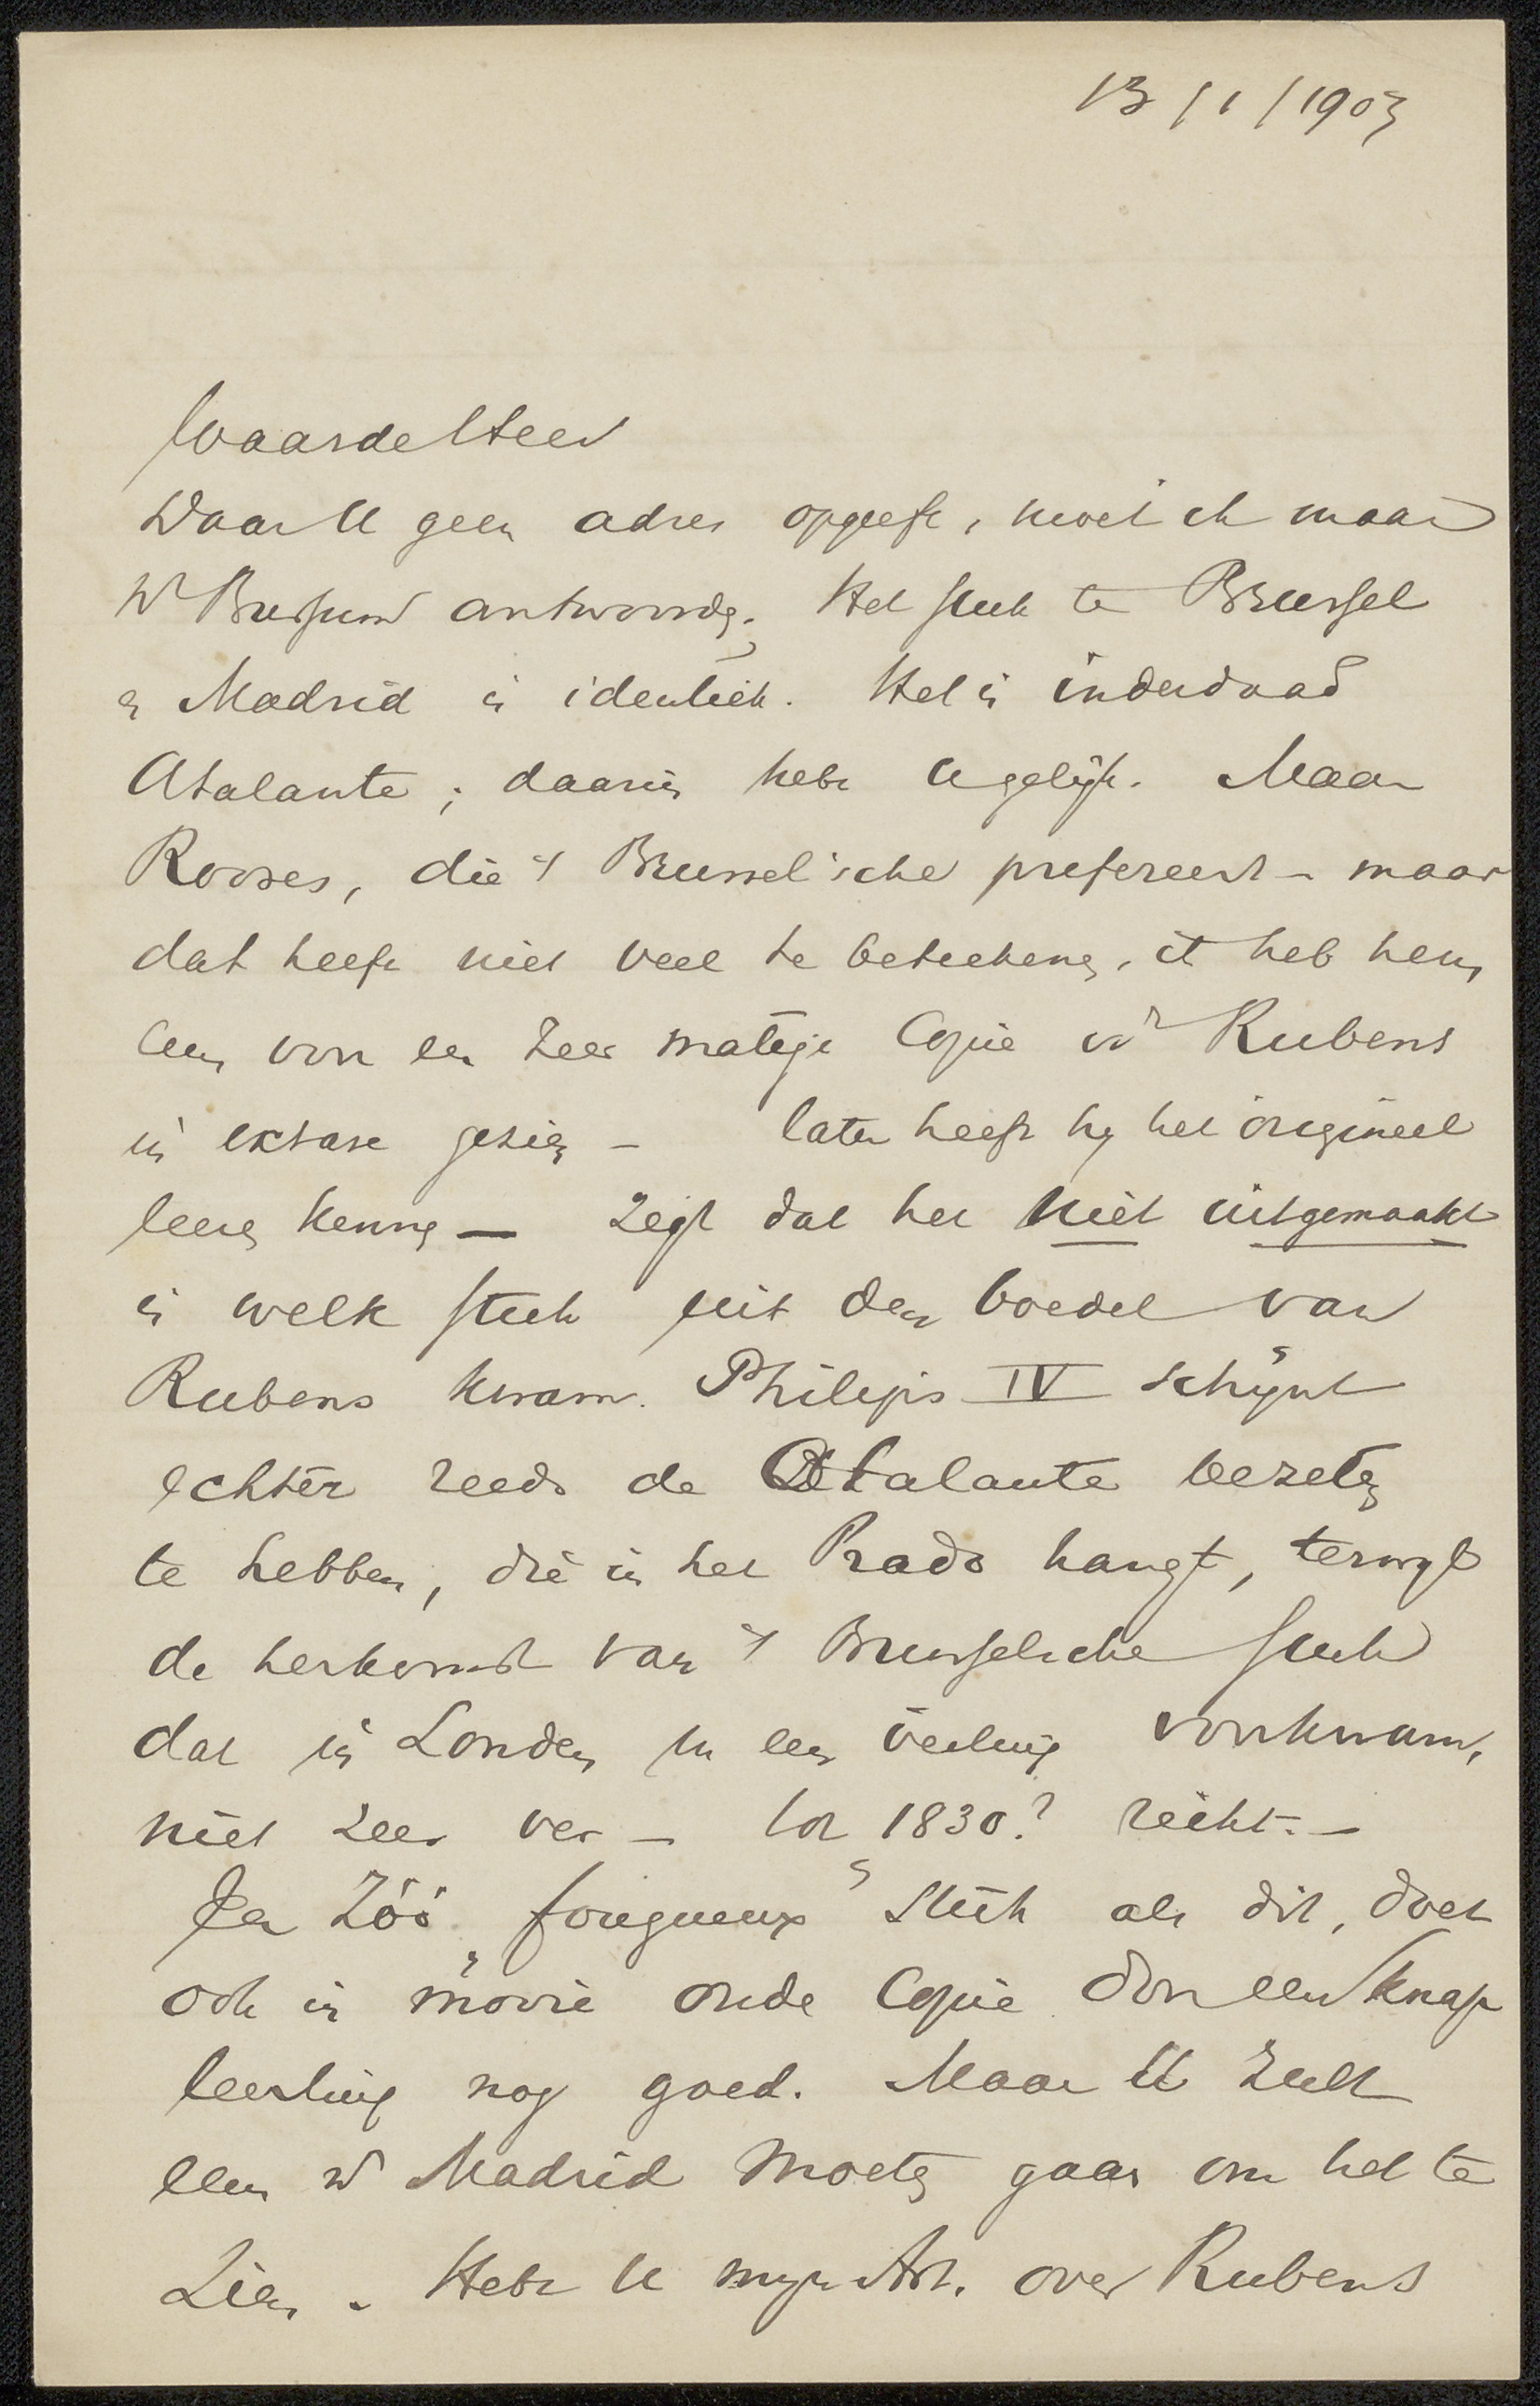 13/1/1903
Waarde Heer
Daar U geen adres opgeeft, moet ik maar
nr Bussum antwoorden. Het stuk te Brussel
en Madrid is identiek. Het is inderdaad
Atalante; daarin hebt U gelijk. Maar
Rooses, die 't Brusselsche prefereert - maar
dat heeft niet veel te beteekenen, ik heb hem
eens voor een zeer matige Copie nr Rubens
in extase gezien - later heeft hy het origineel
leeren kennen — zegt dat het niet uitgemaakt
is welk stuk uit den boedel van
Rubens kwam. Philips IV schijnt
echter reeds de Atalante bezeten
te hebben, die in het Prado hangt, terwyl
de herkomst van 't Brusselsche stuk
dat in Londen in een veiling voorkwam,
niet zeer ver - tot 1830? reikt. -
Een zóó „fougueux" stuk als dit, doet
ook in mooie oude Copie door een knap
leerling nog goed. Maar U zult
eens nr Madrid moeten gaan om het te
zien. Hebt U myn Art. over Rubens